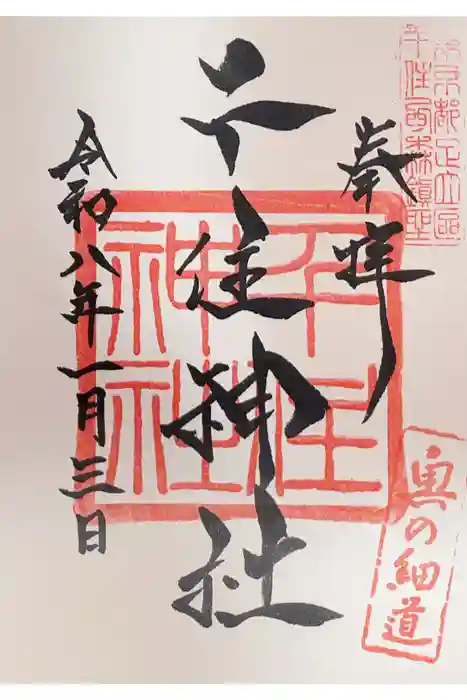 東京都足立区
千住西森鎮聖
奉拝
千住神社
千住
神社
奥の細道
令和八年一月三日